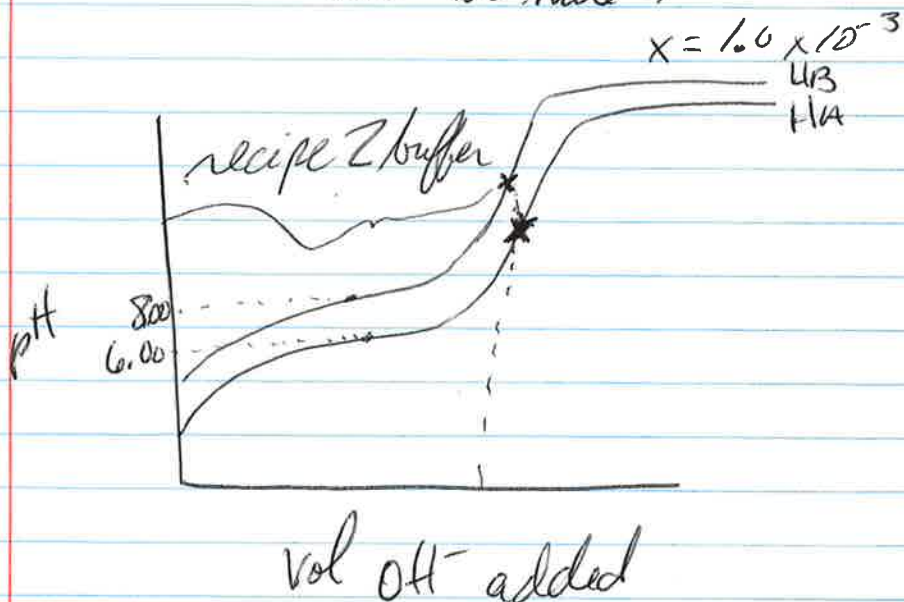 x = 1.0 x 10⁻³
HB
HA
recipe 2 buffer
pH
8.00
6.00
Vol OH⁻ added